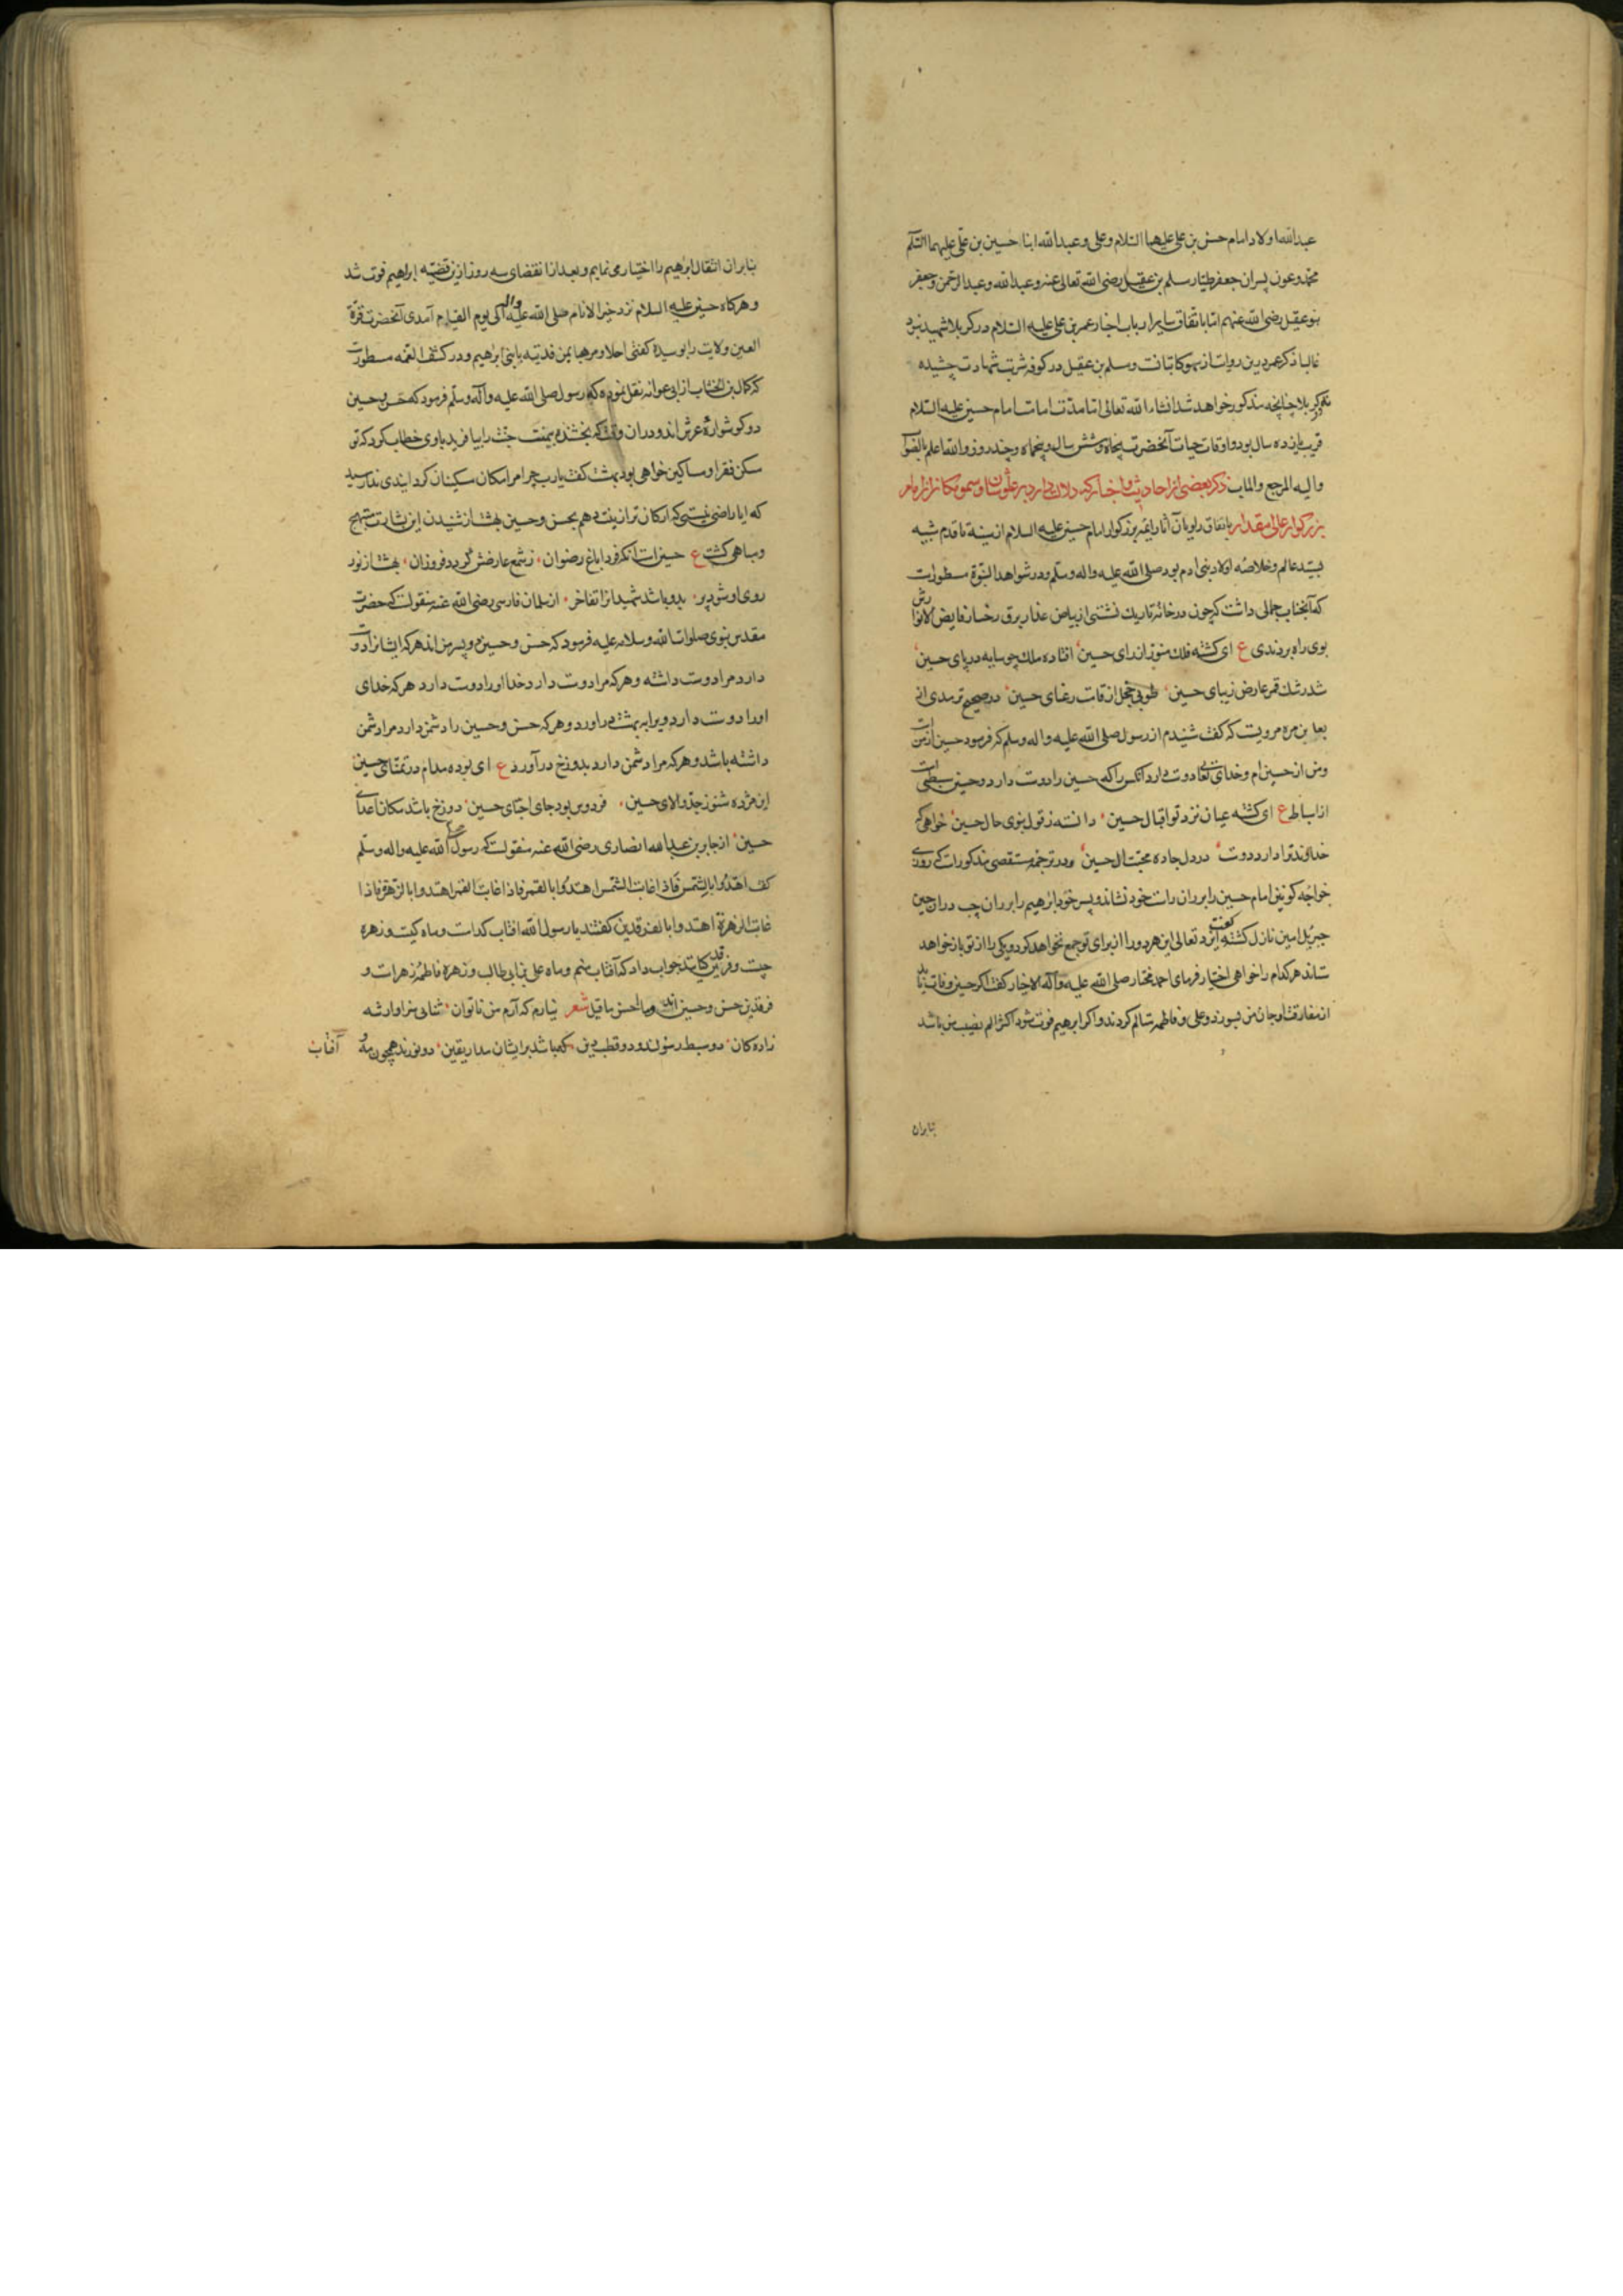 عبدالله اولاد امام حسن بن علی علیهما السلام و علی و عبدالله ابنا حسین بن علی علیهما السلم
محمد و عون پسران جعفر طیار مسلم بن عقیل رضی الله تعالی عنه و عبدالله و عبدالرحمن و جعفر
بنو عقیل رضی الله عنهم اما باتفاق سایر ارباب اخبار عمر بن علی علیه السلام در کربلا شهید نبود
غالبا ذکر عمر درین روایت از سهو کاتبانست و مسلم بن عقیل در کوفه شربت شهادت چشیده
نه در کربلا چنانچه مذکور خواهد شد انشاء الله تعالی اما مدت امامت امام حسین علیه السلام
قریب یازده سال بود و اوقات حیات آنحضرت پنجاه و شش سال و پنجماه و چند روز والله اعلم بالصواب
والیه المرجع والماب ذکر بعضی از احادیث و اخبار که دلالت دارد بر علو شان و سمو مکان ان امام
بزرکوار عالی مقدار باتفاق راویان آثار ائمه بزرکوار امام حسین علیه السلام از سینه تا قدم شبیه
بسید عالم و خلاصه اولاد بنی ادم بود صلی الله علیه واله وسلم و در شواهد النبوة مسطورست
که آنجناب جمالی داشت که چون در خانه تاریک نشستی از بیاض عذار و برق رخسار فایض الانوارش
بوی راه بردندی ع ای کشته فلک منور از رای حسین افتاده ملک چو سایه در پای حسین
شد رشک قمر عارض زیبای حسین طوبی خجل از قامت رعنای حسین در صحیح ترمدی از
یعلی بن مره مرویست که کفت شنیدم از رسول صلی الله علیه واله وسلم که فرمود حسین از منست
و من از حسین ام و خدای تعالی دوست دارد آنکس را که حسین را دوست دارد و حسین سبطی است
از اسباط ع ای کشته عیان نزد تو اقبال حسین دانسته ز قول نبوی حال حسین خواهی که
خداوند ترا دارد دوست در دل جا ده محبت ال حسین و در ترجمه مستقصی مذکورات که روزی
خواجه کونین امام حسین را بر ران راست خود نشاند و پسر خود ابرهیم را بر ران چپ در ان حین
جبرئیل امین نازل کشته کفت ایزد تعالی این هر دو را از برای تو جمع نخواهد کرد و یکی را از تو باز خواهد
ستاند هر کدام را خواهی اختیار فرمای احمد مختار صلی الله علیه و آله الاخیار کفت اکر حسین وفات یابد
از مفارقت او جان من بسوزد و علی و فاطمه متالم کردند و اکر ابرهیم فوت شود اکثر الم نصیب من باشد
بنابران
بنابران انتقال ابرهیم را اختیار می نمایم و بعد از انقضای سه روز ازین قضیه ابراهیم فوت شد
و هرکاه حسین علیه السلام نزد خیر الانام صلی الله علیه واله الی یوم القیام آمدی آنحضرت قرة
العین ولایت را بوسیده کفتی اهلا و مرحبا بمن فدیته بابنی ابرهیم و در کشف الغمه مسطورست
که کمال بن الخشاب از ابی عوانه نقل نموده که رسول صلی الله علیه وآله وسلم فرمود که حسن و حسین
دو کوشواره عرش اند و دران وقت که بخشنده بیمنت جنت را بیافرید باوی خطاب کرد که تو
مسکن فقرا و مساکین خواهی بود بهشت کفت یارب چرا مرا مکان مسکینان کردایندی ندا رسید
که ایا راضی نیستی که ارکان ترا زینت دهم بحسن و حسین بهشت از شنیدن این بشارت مبتهج
و مباهی کشت ع حسین است انکه فردا باغ رضوان ز شمع عارضش کردد فروزان بهشت از نور
روی او شود پر بدو باشد شهیدانرا تفاخر از سلمان فارسی رضی الله عنه منقولست که حضرت
مقدس نبوی صلوات الله وسلامه علیه فرمود که حسن و حسین دو پسر من اند هر که ایشانرا دوست
دارد مرا دوست داشته و هر که مرا دوست دارد خدا او را دوست دارد هر که خدای
اورا دوست دارد ویرا به بهشت دراورد و هر که حسن و حسین را دشمن دارد مرا دشمن
داشته باشد و هر که مرا دشمن دارد بدوزخ درآورد ع ای بوده مدام در تمنای حسین
این مژده شنو ز جد والای حسین فردوس بود جای احبای حسین دوزخ باشد مکان اعدای
حسین از جابر بن عبدالله انصاری رضی الله عنه منقولست که رسول صلی الله علیه واله وسلم
کفت اهتدوا بالشمس فاذا غابت الشمس اهتدوا بالقمر فاذا غاب القمر اهتدوا بالزهره فاذا
غابت الزهرة اهتدوا بالفرقدین کفتند یا رسول الله افتاب کدامست و ماه کیست و زهره
چیست و فرقدین کیانند جواب داد که آفتاب منم و ماه علی بن ابی طالب و زهره فاطمه زهرات و
فرقدین حسن و حسین اند وما احسن ما قیل شعر نیارم که آرم من ناتوان ثنائی سزاوار شه
زاده کان دو سبط رسولند و دو قطب دین که باشد برایشان مدار یقین دو نورند همچون مه و
آفتاب